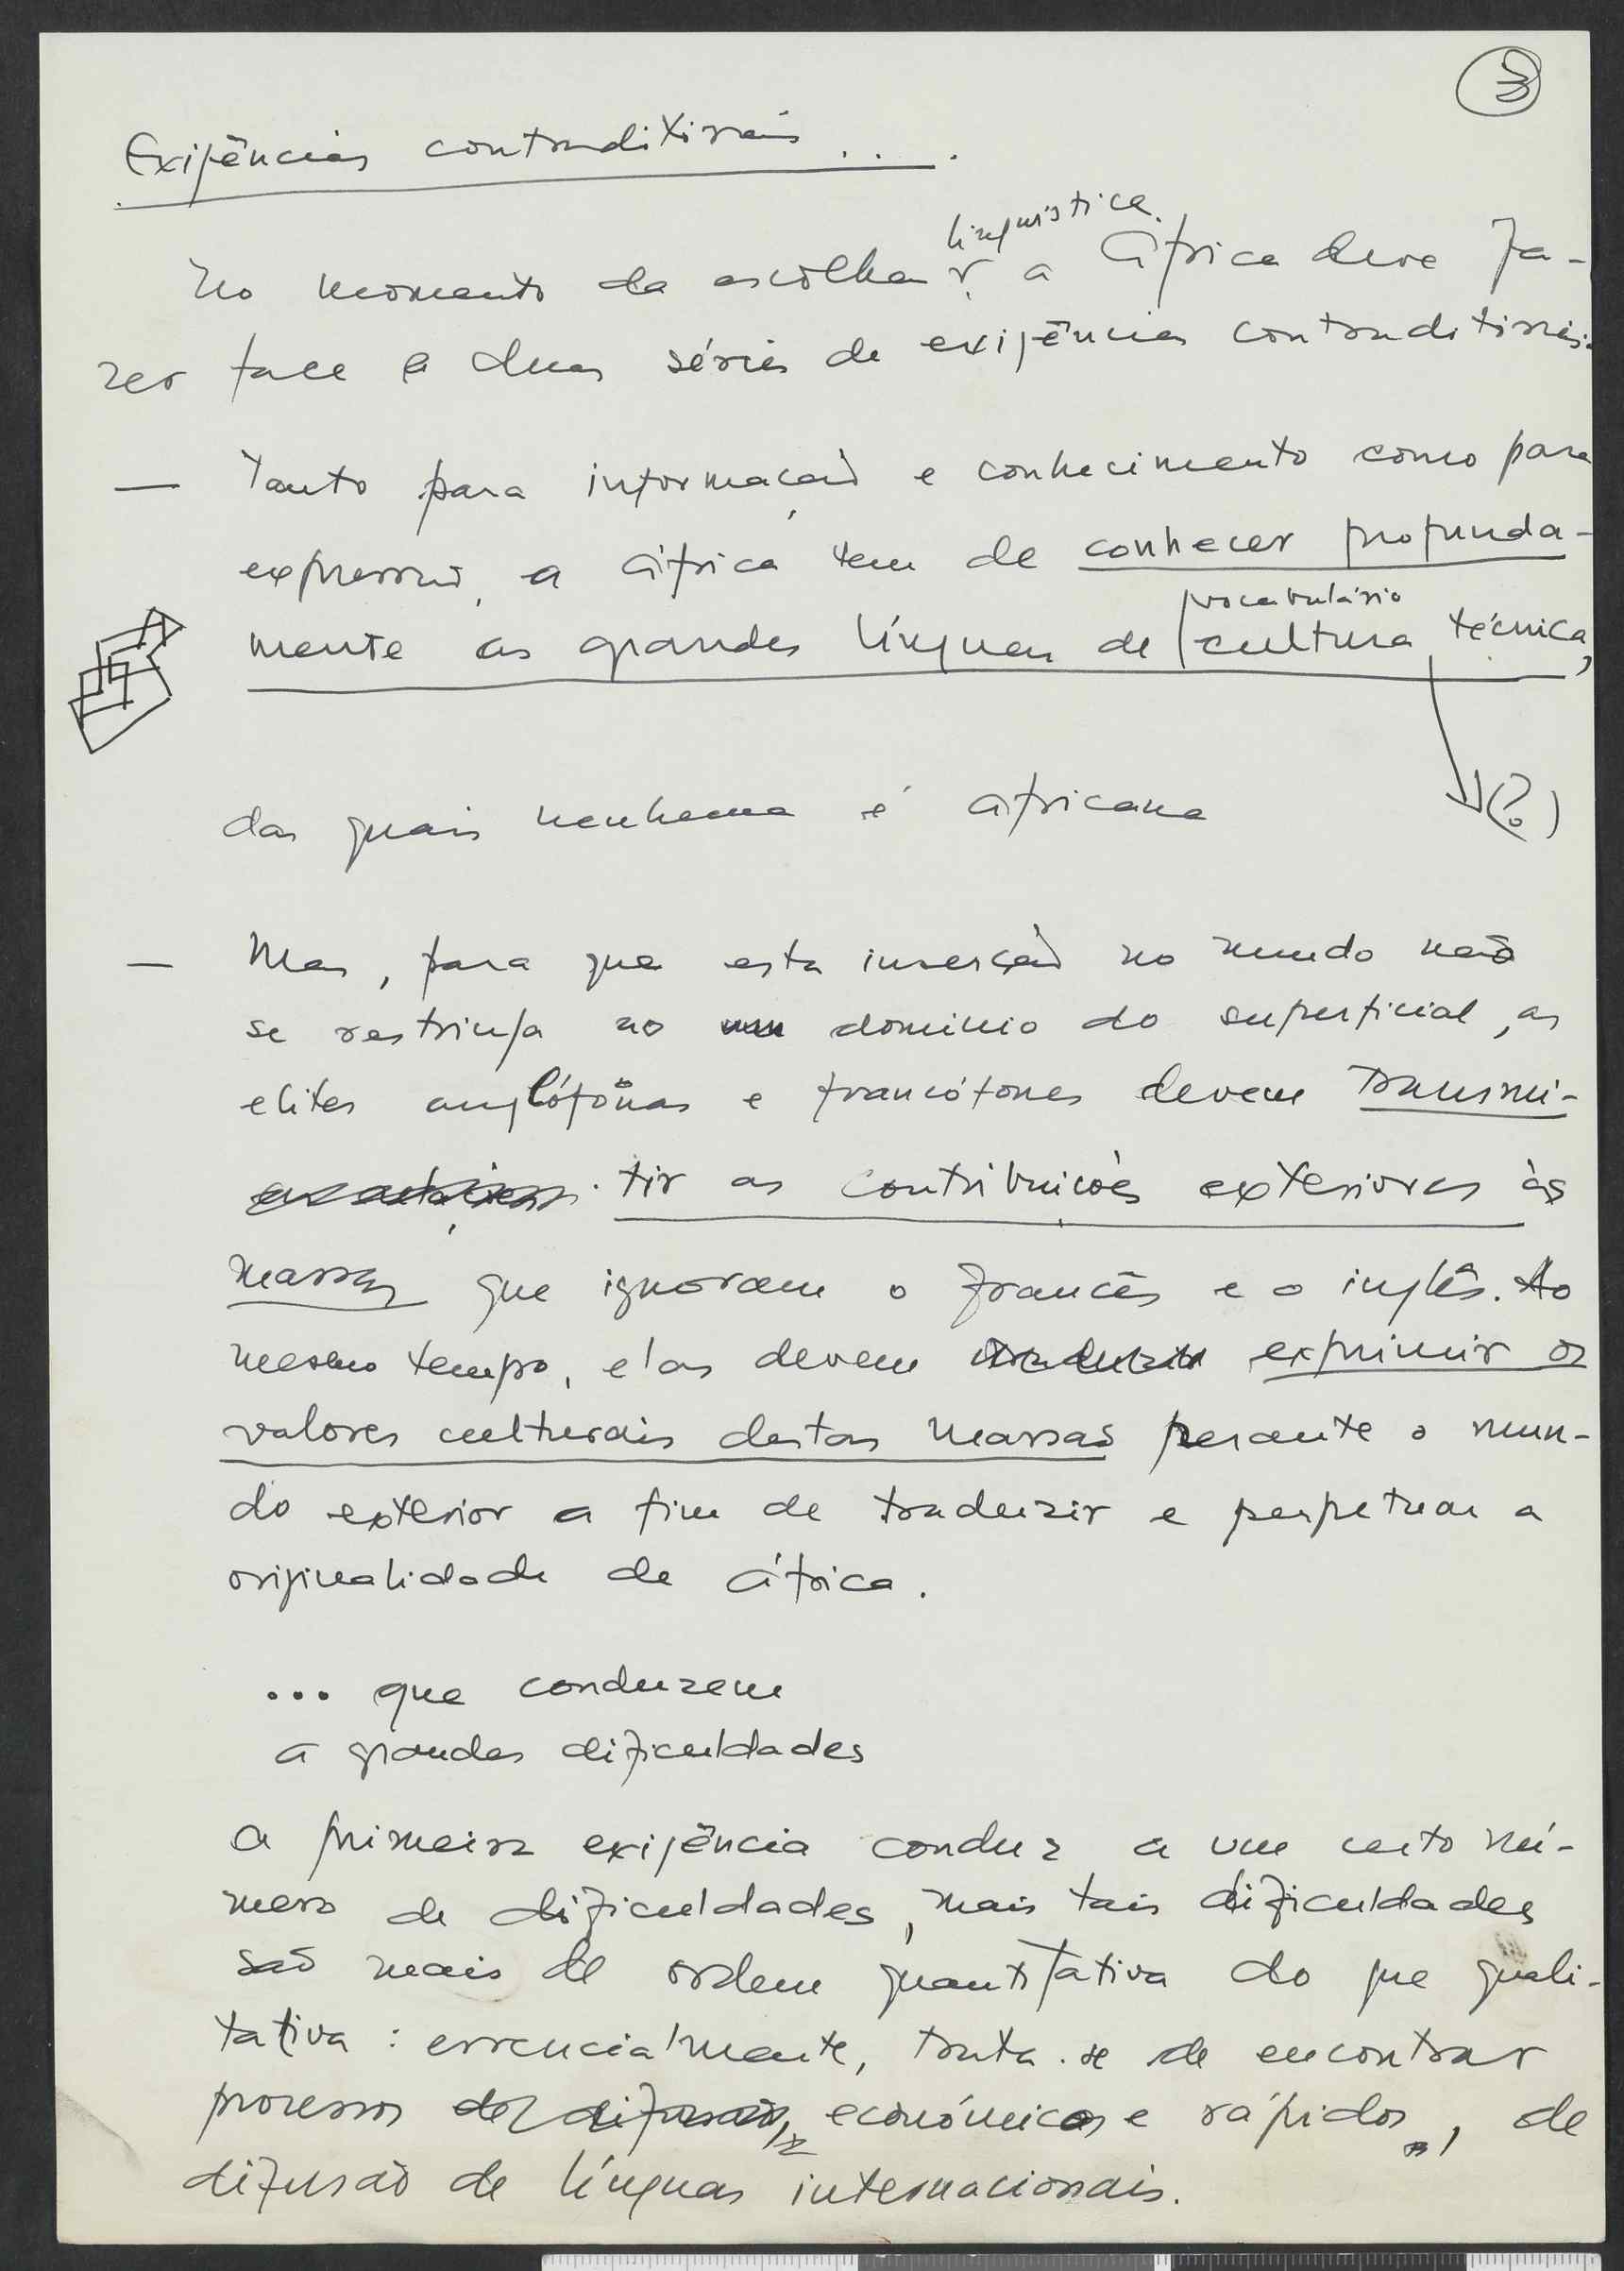 3
Exigências contraditórias ....
linguística
No momento da escolha, a África deve fa-
zer face a duas séries de exigências contraditórias:
— Tanto para informação e conhecimento como para
expressão, a África tem de conhecer profunda-
vocabulário
mente as grandes línguas de cultura técnica,
das quais nenhuma é africana
(?)
— Mas, para que esta inserção no mundo não
se restrinja ao domínio do superficial, as
elites anglófonas e francófones devem transmi-
tir as contribuições exteriores às
massas que ignoram o francês e o inglês. Ao
mesmo tempo, elas devem traduzir exprimir os
valores culturais destas massas perante o mun-
do exterior a fim de traduzir e perpetuar a
originalidade de África.
... que conduzem
a grandes dificuldades
A primeira exigência conduz a um certo nú-
mero de dificuldades, mais tais dificuldades
são mais de ordem quantitativa do que quali-
tativa: essencialmente, trata-se de encontrar
processos de difusão, económicos e rápidos, de
difusão de línguas internacionais.